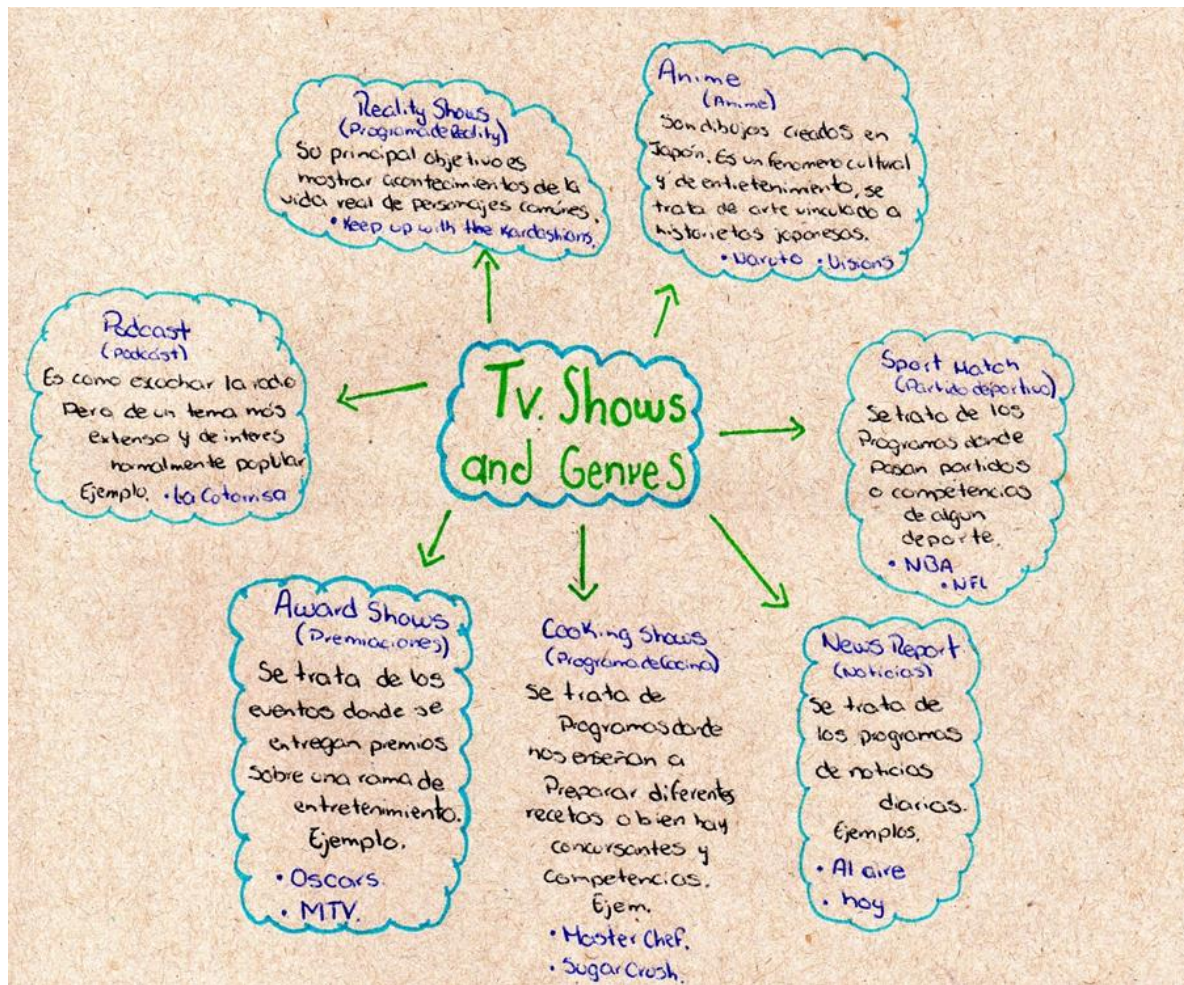 Reality Shows
(Programa de Reality)
Su principal objetivo es
mostrar acontecimientos de la
vida real de personajes comúnes.
• Keep up with the Kardashians.
Anime
(Anime)
Son dibujos creados en
Japón. Es un fenomeno cultural
y de entretenimento, se
trata de arte vinculado a
historietas japonesas.
• Naruto • Visions
Podcast
(Podcast)
Es como escuchar la radio
Pero de un tema más
extenso y de interes
normalmente popular
Ejemplo. • La Cotorrisa
Tv. Shows
and Genres
Sport Match
(Partido deportivo)
Se trata de los
Programas donde
pasan partidos
o competencias
de algun
deporte.
• NBA
• NFL
Award Shows
(Premiaciones)
Se trata de los
eventos donde se
entregan premios
sobre una rama de
entretenimiento.
Ejemplo.
• Oscars.
• MTV.
Cooking Shows
(Programa de Cocina)
Se trata de
Programas donde
nos enseñan a
Preparar diferentes
recetas o bien hay
concursantes y
Competencias.
Ejem.
• Master Chef.
• Sugar Crush.
News Report
(Noticias)
Se trata de
los programas
de noticias
diarias.
Ejemplos.
• Al aire
• hoy